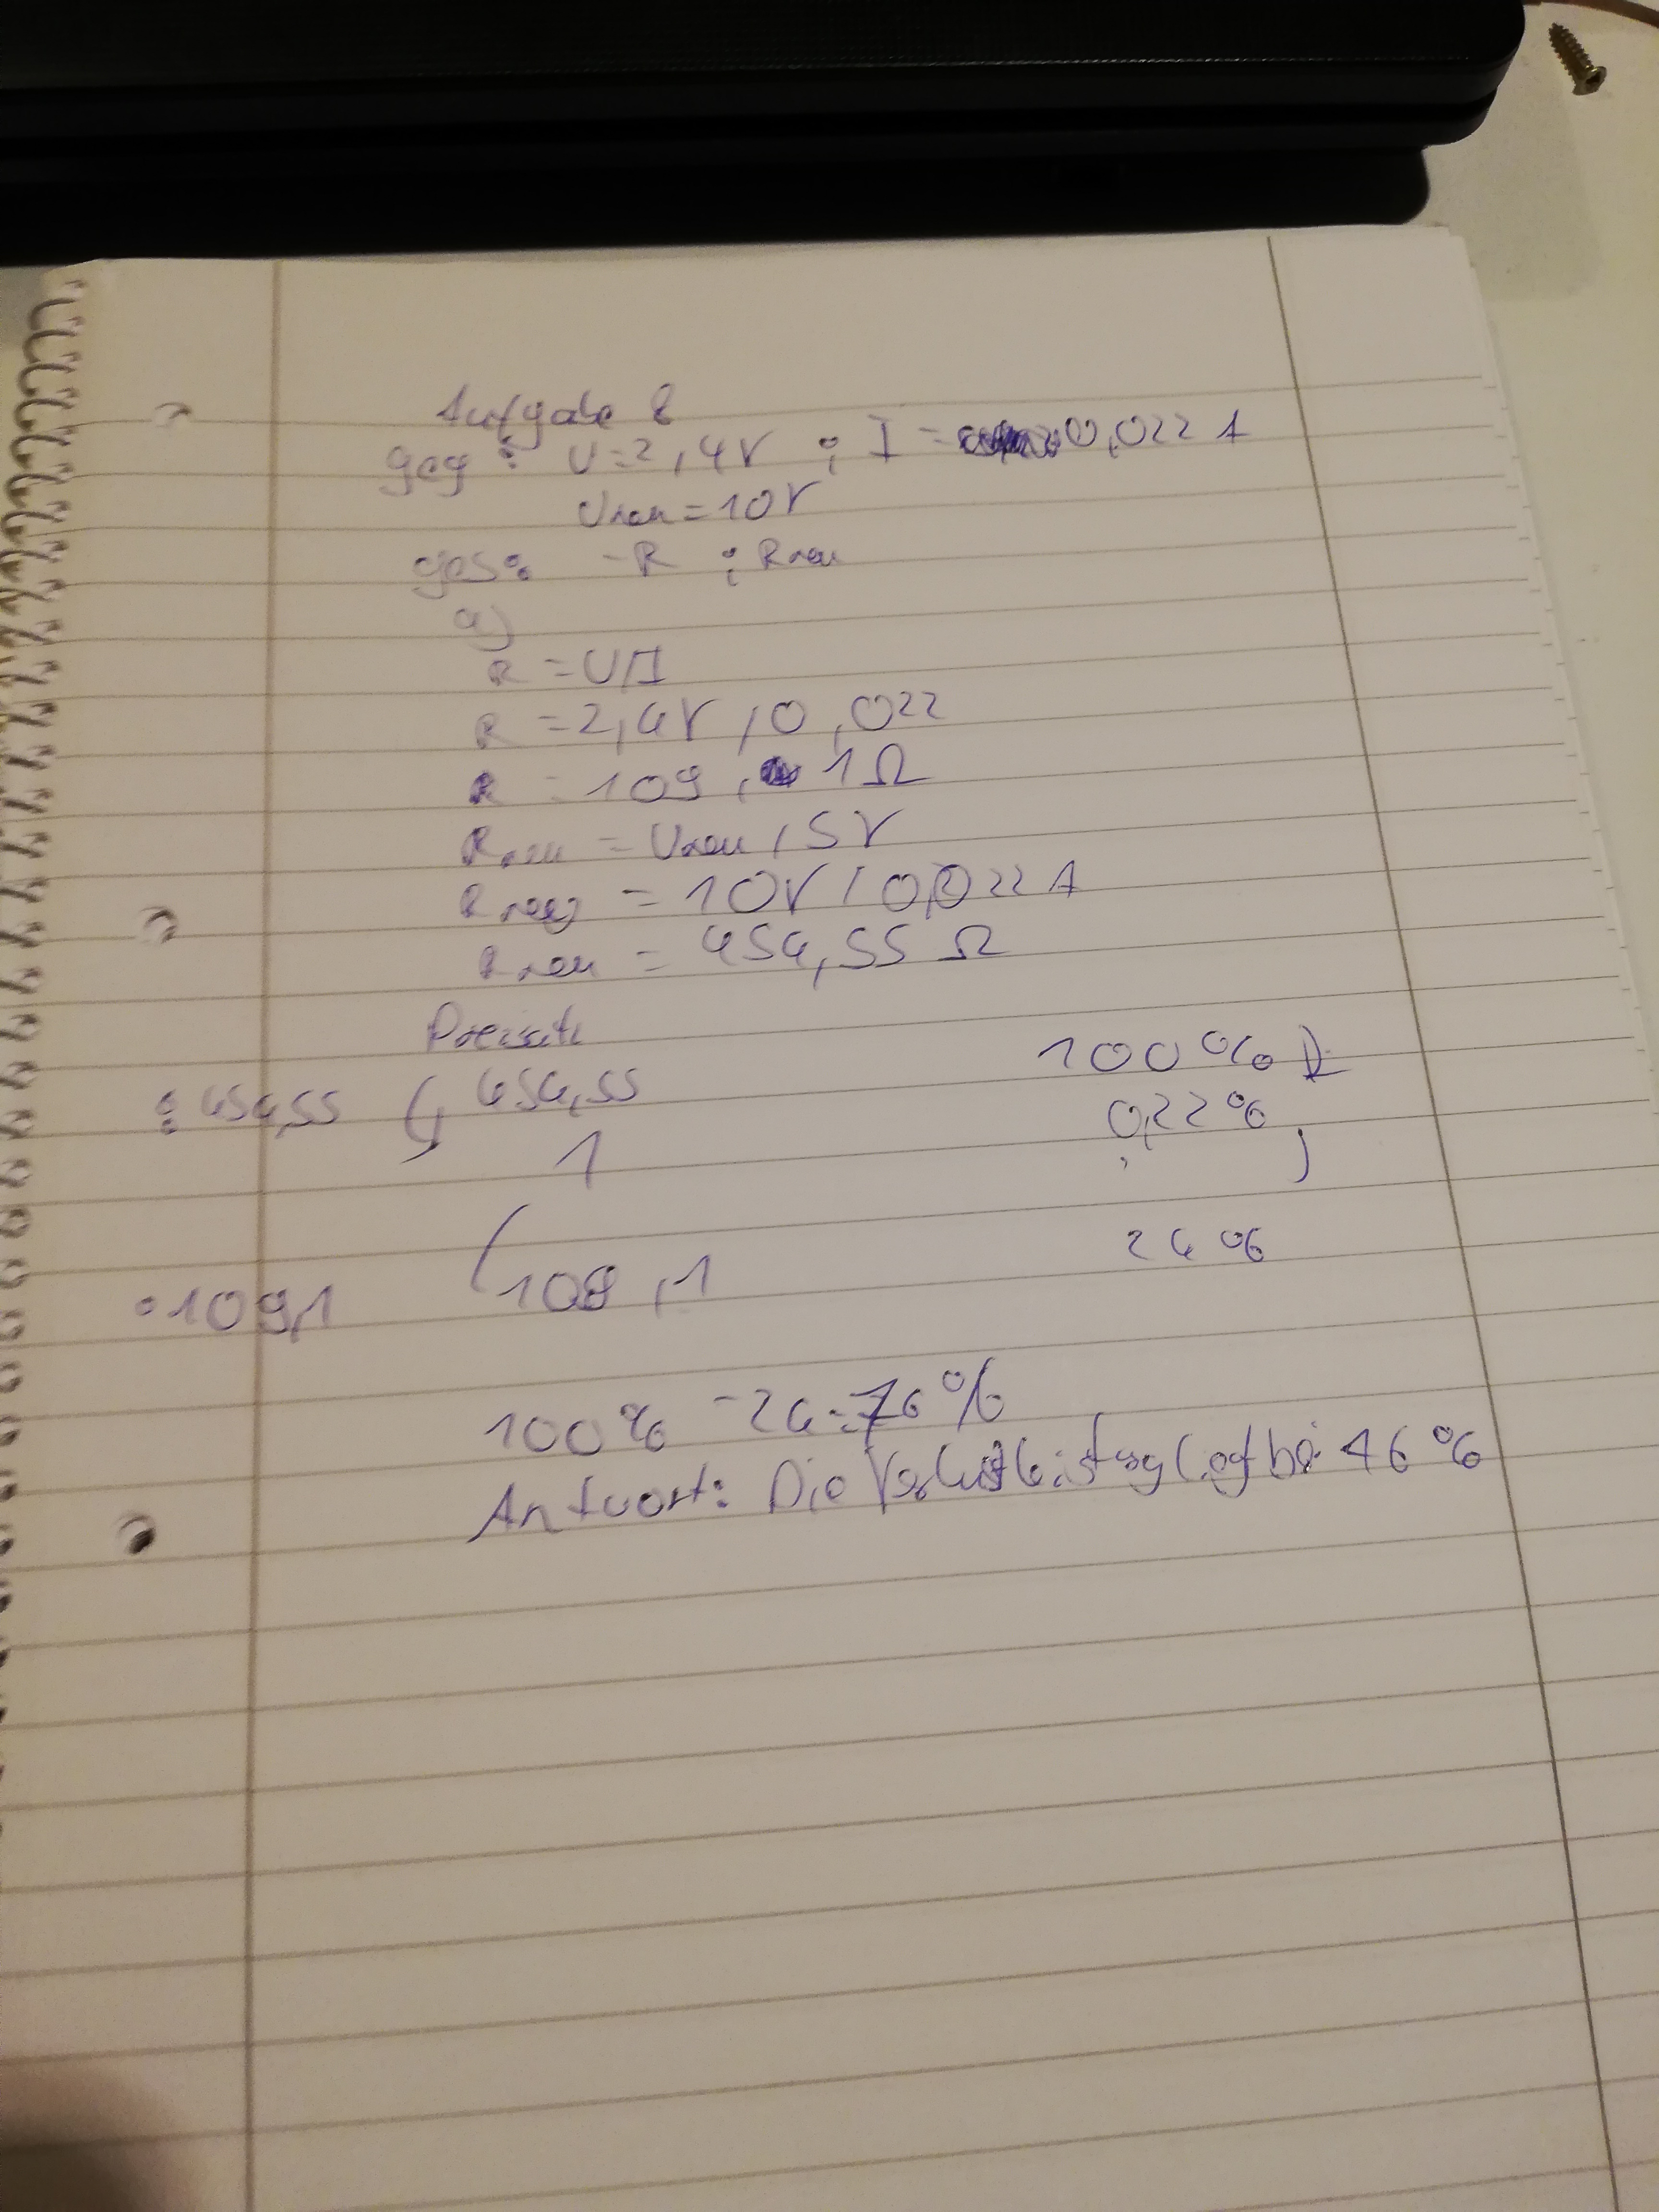 Aufgabe 8
geg: U=2,4V ; I = 0,022 A
Uneu = 10V
ges: -R ; Rneu
a)
R = U/I
R = 2,4V / 0,022
R = 109, 1Ω
Rneu = Uneu / 5V
Rneu = 10V / 0,022 A
Rneu = 454,55 Ω
Dreisatz
: 454,55 454,55 100%
1 0,22%
·109,1 109,1 24%
100% -24=76%
Antwort: Die Verlustleistung liegt bei 46%